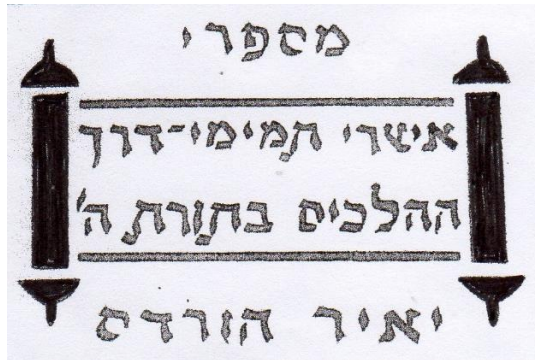 מספרי
אשרי תמימי-דרך
ההלכים בתורת ה'
יאיר הורדס